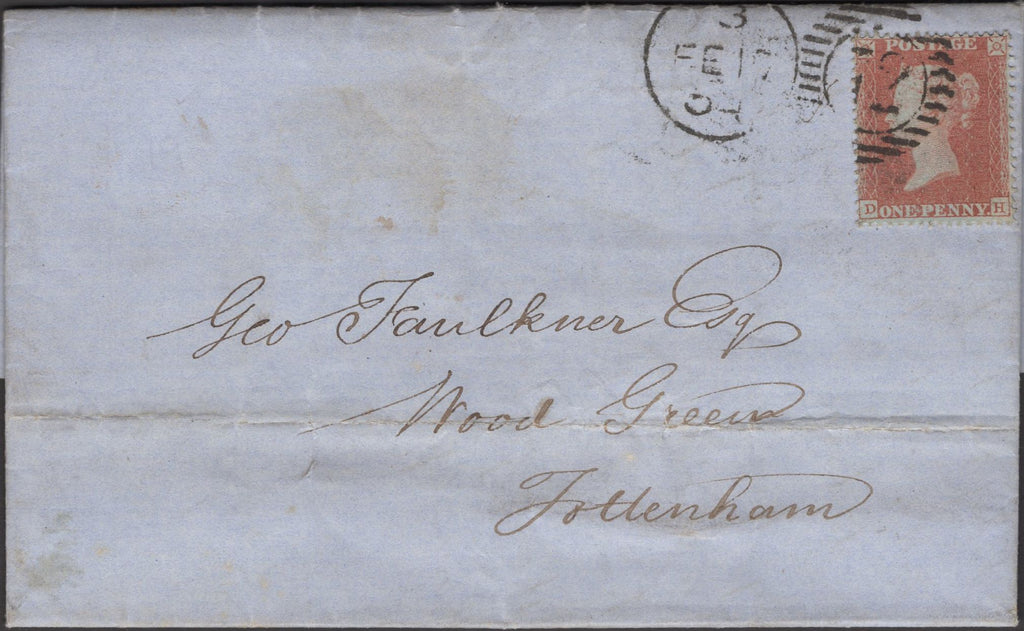 POSTAGE
D ONE PENNY H
Geo Faulkner Esq
Wood Green
Tottenham